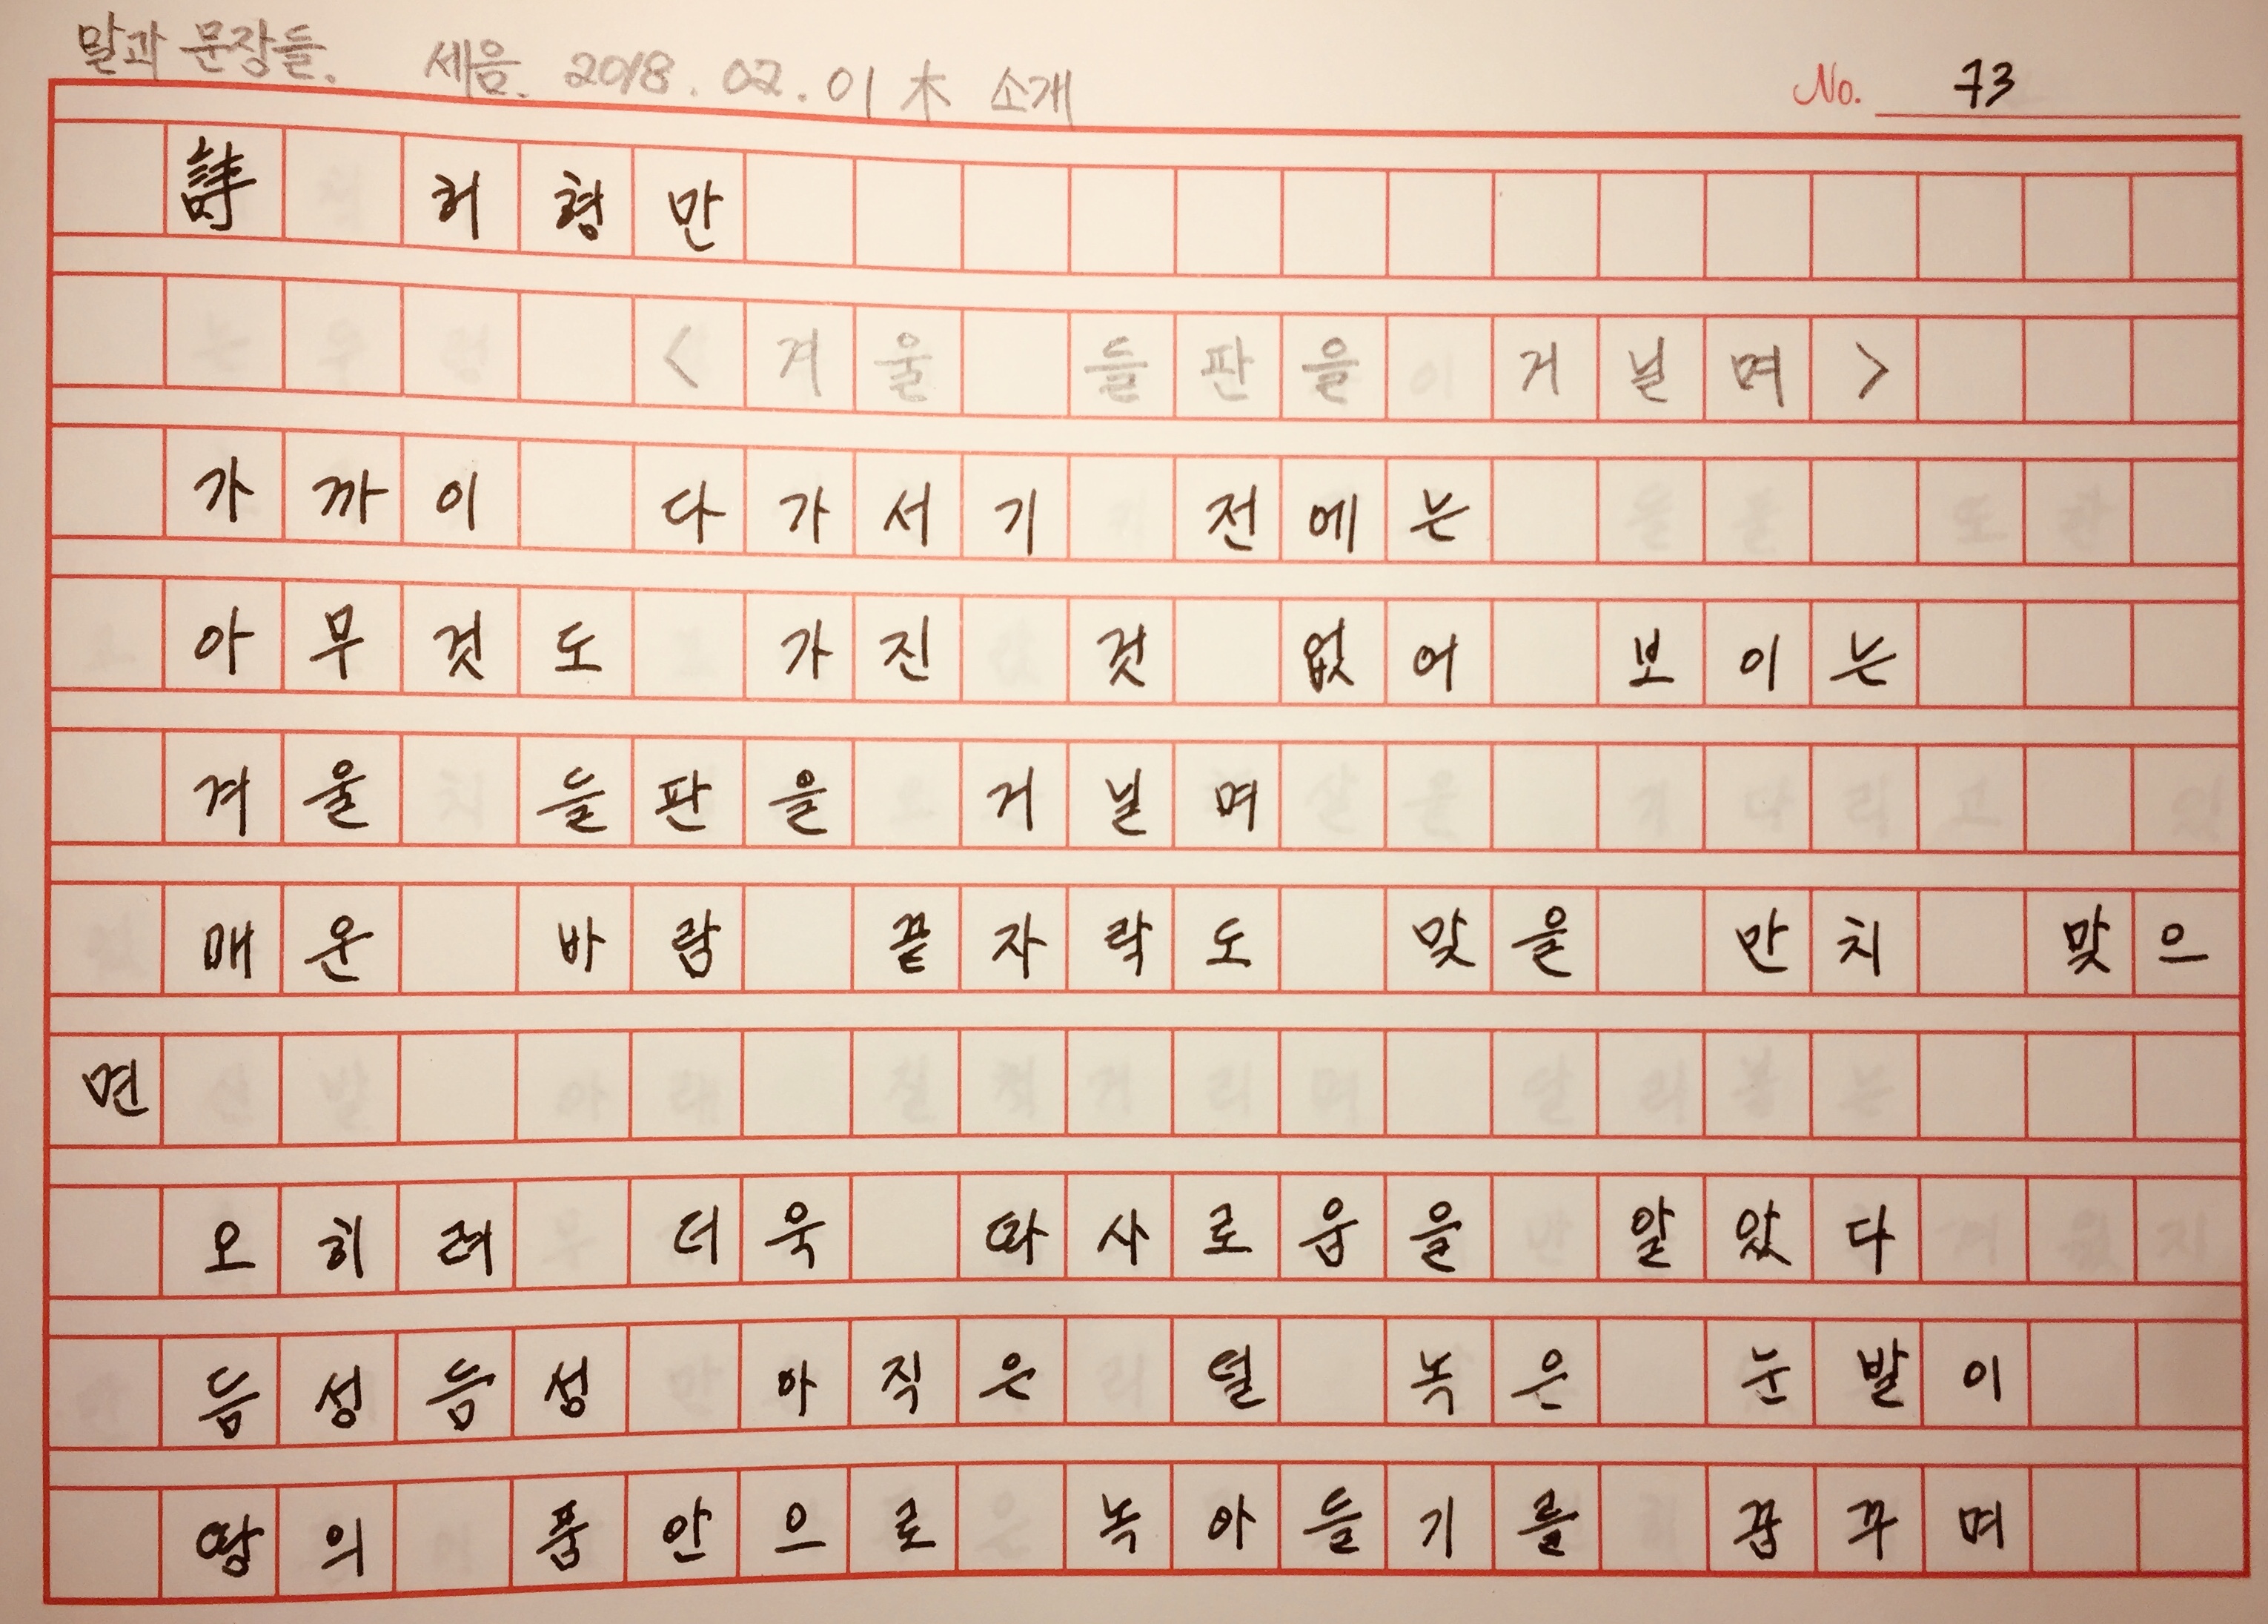 말과 문장들. 세음. 2018. 02. 01 木 소개
No. 73
詩 허형만
<겨울 들판을 거닐며>
가까이 다가서기 전에는
아무것도 가진 것 없어 보이는
겨울 들판을 거닐며
매운 바람 끝자락도 맞을 만치 맞으
면
오히려 더욱 따사로움을 알았다
듬성듬성 아직은 덜 녹은 눈발이
땅의 품안으로 녹아들기를 꿈꾸며